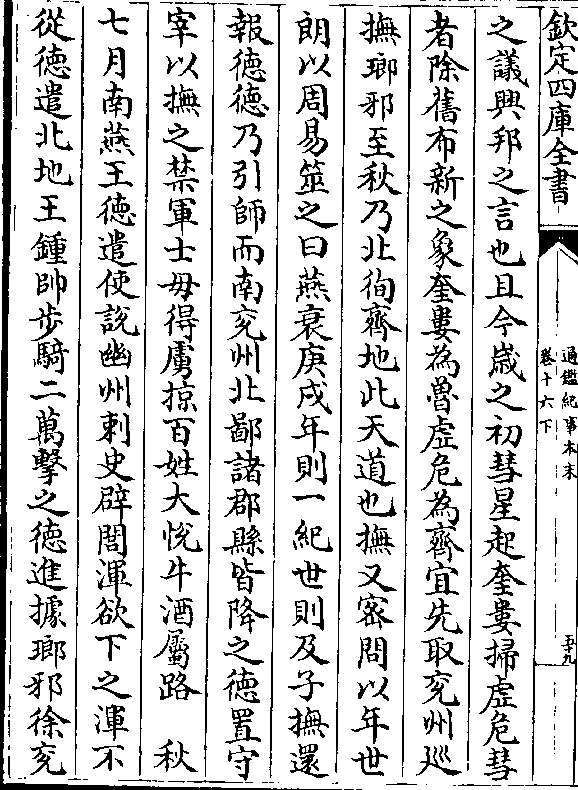 欽定四庫全書
通鑑紀事本末
卷十六下
五十九
之議興邦之言也且今嵗之初彗星起奎婁掃虛危彗
者除舊布新之象奎婁為魯虛危為齊宜先取兖州廵
撫瑯邪至秋乃北徇齊地此天道也撫又密問以年世
朗以周易筮之曰燕衰庚戌年則一紀世則及子撫還
報徳徳乃引師而南兖州北鄙諸郡縣皆降之徳置守
宰以撫之禁軍士毋得虜掠百姓大悅牛酒屬路　秋
七月南燕王徳遣使說幽州刺史辟閭渾欲下之渾不
從徳遣北地王鍾帥步騎二萬擊之徳進據瑯邪徐兖